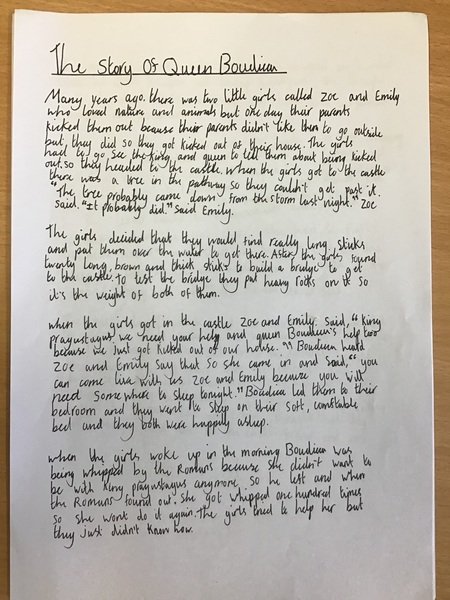 The Story Of Queen Boudicca
Many years ago. there was two little girls called Zoe and Emily
who loved nature and animals but one day their parents
kicked them out because their parents didn't like them to go outside
but, they did so they got kicked out of their house. The girls
had to go see the king and queen to tell them about being kicked
out. so they headed to the castle. When the girls got to the castle
there was a tree in the pathway so they couldn't get past it.
"The tree probably came down from the storm last night." Zoe
said. "It probably did." Said Emily.
The girls decided that they would find really long sticks
and put them over the water to get there. After the girls found
twenty long, brown and thick sticks to build a bridge to get
to the castle. To test the bridge they put heavy rocks on it so
it's the weight of both of them.
when the girls got in the castle Zoe and Emily. Said, "King
prasutagus. we need your help and queen Boudicca's help too
because we just got kicked out of our house." Boudicca heard
Zoe and Emily say that so she came in and said, "you
can come live with us Zoe and Emily because you will
need somewhere to sleep tonight." Boudica led them to their
bedroom and they went to sleep on their soft, comftable
bed and they both were happily asleep.
when the girls woke up in the morning Boudicca was
being whipped by the Romans because she didn't want to
be with King prasustagus anymore so he left and when
the Romans found out. She got whipped one hundred times
so she wont do it again. The girls tried to help her but
they just didn't know how.